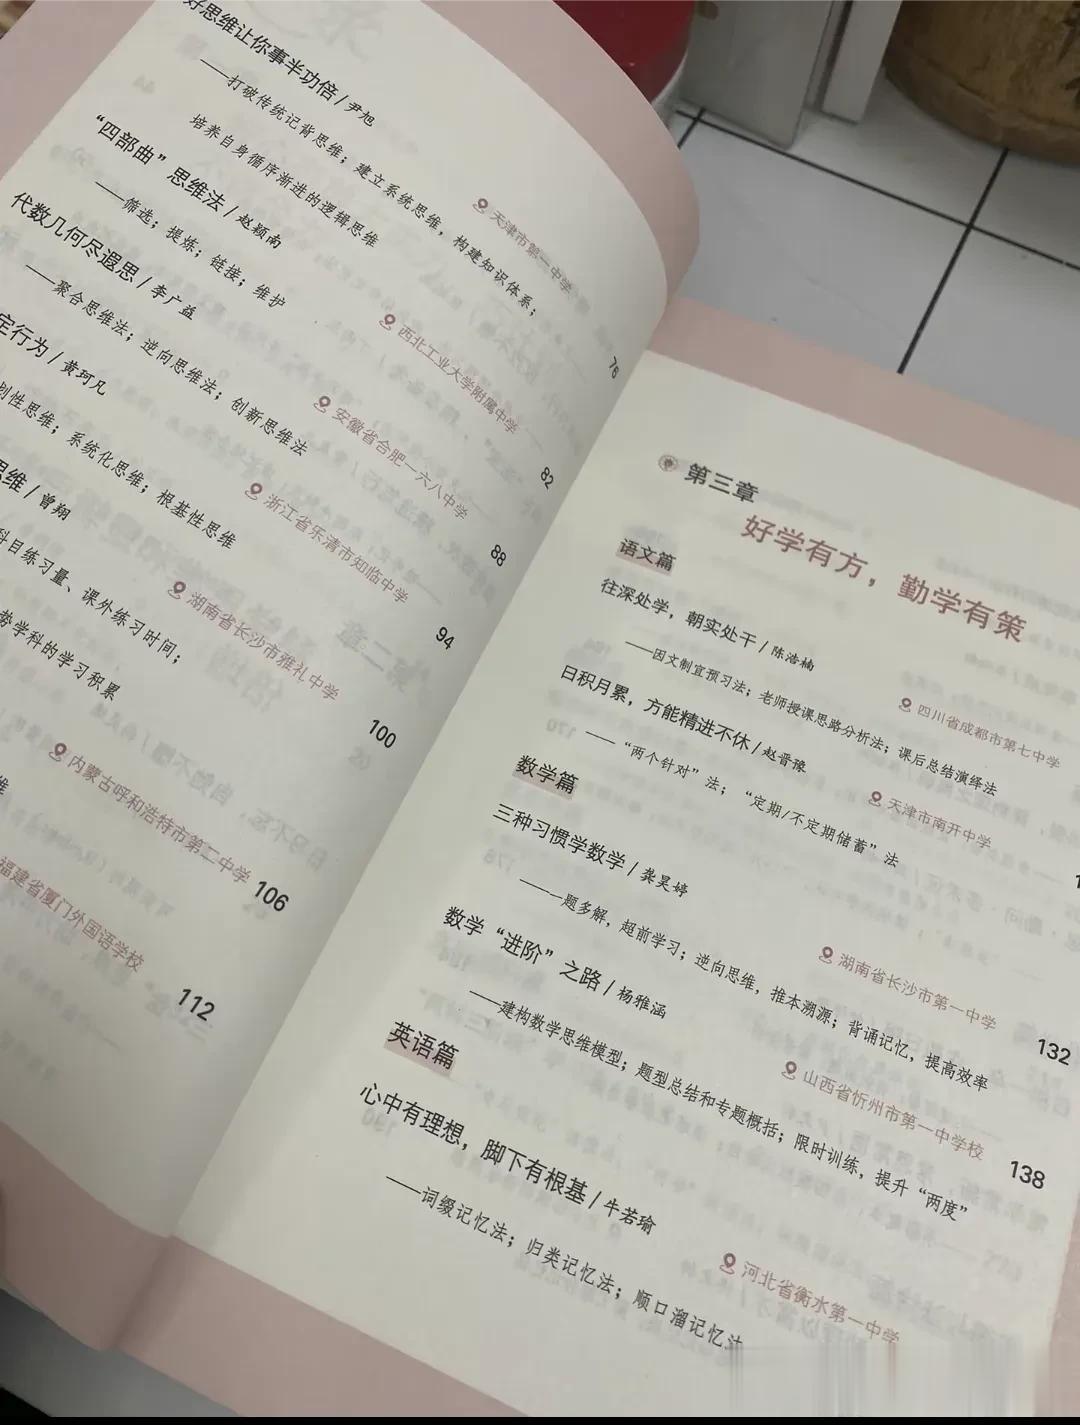 好思维让你事半功倍 / 尹旭
——打破传统记背思维；建立系统思维，构建知识体系；
培养自身循序渐进的逻辑思维
天津市第一中学
76
“四部曲”思维法 / 赵颖南
——筛选；提炼；链接；维护
西北工业大学附属中学
82
代数几何尽遐思 / 李广益
——聚合思维法；逆向思维法；创新思维法
安徽省合肥一六八中学
88
定行为 / 黄珂凡
划性思维；系统化思维；根基性思维
浙江省乐清市知临中学
94
思维 / 曾翔
科目练习量、课外练习时间；
势学科的学习积累
湖南省长沙市雅礼中学
100
内蒙古呼和浩特市第二中学
106
维
福建省厦门外国语学校
112
第三章
好学有方，勤学有策
语文篇
往深处学，朝实处干 / 陈浩楠
——因文制宜预习法；老师授课思路分析法；课后总结演绎法
四川省成都市第七中学
日积月累，方能精进不休 / 赵晋豫
——“两个针对”法；“定期/不定期储蓄”法
天津市南开中学
数学篇
三种习惯学数学 / 龚昊婷
——一题多解，超前学习；逆向思维，推本溯源；背诵记忆，提高效率
湖南省长沙市第一中学
132
数学“进阶”之路 / 杨雅涵
——建构数学思维模型；题型总结和专题概括；限时训练，提升“两度”
山西省忻州市第一中学校
138
英语篇
心中有理想，脚下有根基 / 牛若瑜
——词缀记忆法；归类记忆法；顺口溜记忆法
河北省衡水第一中学